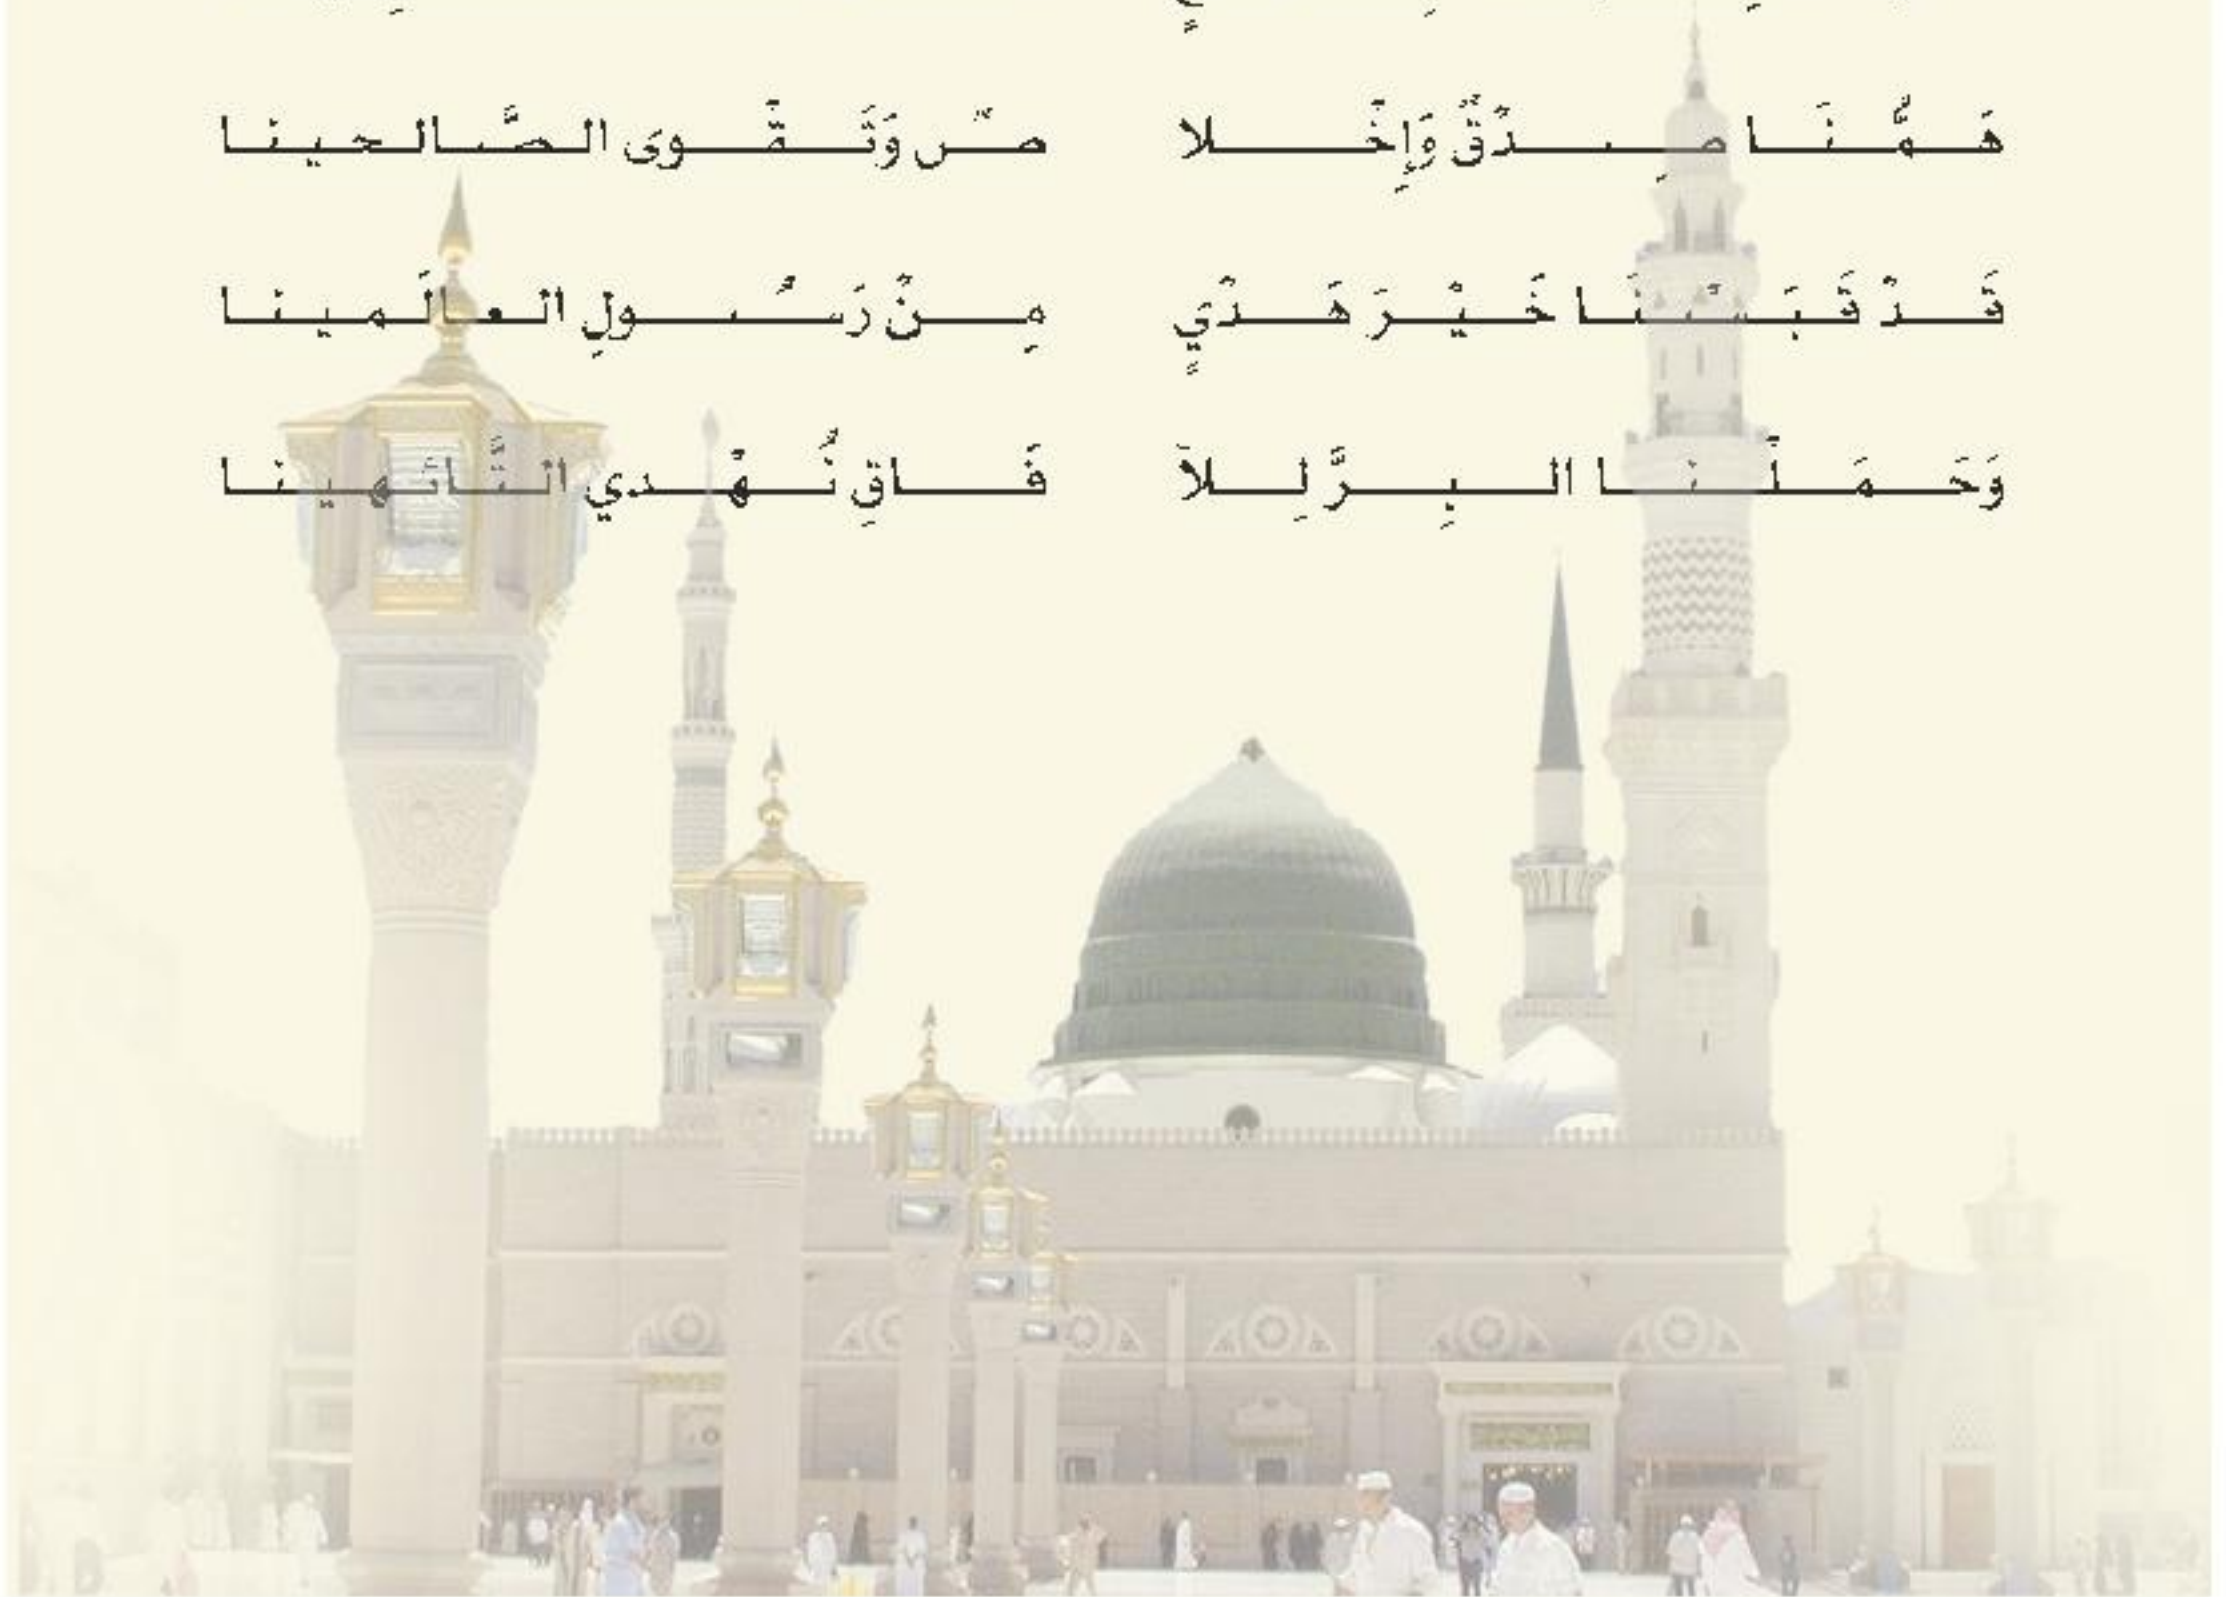 هَمُّنَا صِدْقٌ وَإِخْلا صٌ وَتَقْوى الصَّالحينا
قَدْ قَبَسْنَا خَيْرَ هَدْيٍ مِنْ رَسُولِ العالَمينا
وَحَمَلْنا البِرَّ لِلآ فَاقِ نُهْدي التَّائهينا